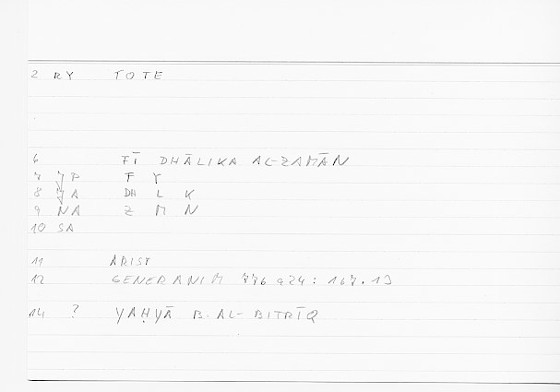 2 RY TOTE
6 FĪ DHĀLIKA AL-ZAMĀN
7 YP F Y
8 YA DH L K
9 NA Z M N
10 SA
11 ARIST
12 GENERANIM 776a24: 167.13
14 ? YAḤYĀ B. AL-BIṬRĪQ